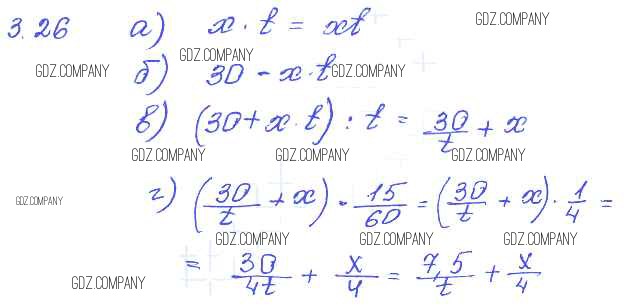 3.26 а) x · t = xt
GDZ.COMPANY
GDZ.COMPANY
GDZ.COMPANY б) 30 - x · t GDZ.COMPANY
в) (30 + x · t) : t = 30/t + x
GDZ.COMPANY GDZ.COMPANY GDZ.COMPANY
GDZ.COMPANY г) (30/t + x) · 15/60 = (30/t + x) · 1/4 =
GDZ.COMPANY GDZ.COMPANY GDZ.COMPANY
GDZ.COMPANY = 30/4t + x/4 = 7,5/t + x/4